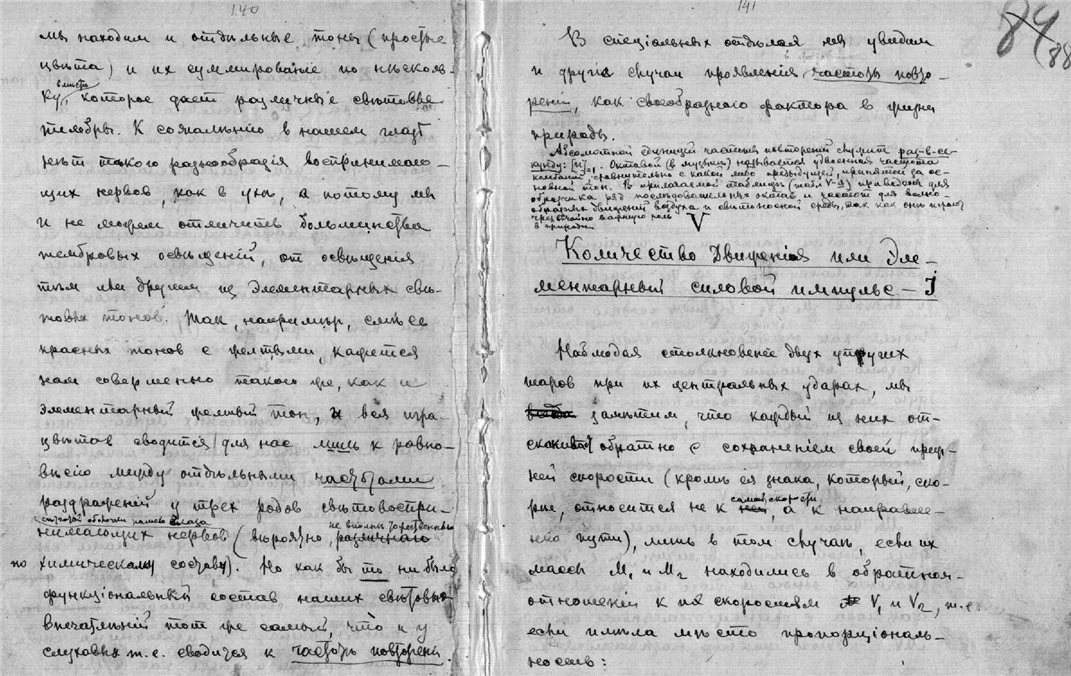 140
мы находим и отдѣльные тоны (простые
цвѣта) и их суммированіе по нѣсколь-
ку вмѣстѣ, которое дает различные свѣтовые
тембры. К сожалѣнію в нашем глазѣ
нѣт такого разнообразія воспринимаю-
щих нервов, как в ухѣ, а потому мы
и не можем отличить большинства
тембровых освѣщеній, от освѣщенія
тѣм или другим из элементарных свѣ-
товых тонов. Так, напримѣр, смѣсь
красных тонов с желтыми, кажется
нам совершенно такой же, как и
элементарный желтый тон, и вся игра
цвѣтов сводится для нас лишь к равно-
вѣсію между отдѣльными частотами
раздраженій у трех родов свѣтовоспри-
сѣтчатой оболочки нашего глаза
нимающих нервов (вѣроятно, не вполнѣ тождественнаго
по химическому составу). Но как бы то ни было
функціональный состав наших свѣтовых
впечатлѣній тот же самый, что и у
слуховых т.е. сводится к частотѣ повтореній.
141
84
88
В спеціальных отдѣлах мы увидим
и другіе случаи проявленія частоты повто-
реній, как своеобразного фактора в жизни
природы.
Абсолютной единицей частоты повтореній служит раз-в-се-
кунду:
Октавой (в музыкѣ) называется удвоенная частота
колебаній сравнительно с какой либо предыдущей, принятой за ос-
новной тон. В прилагаемой таблицѣ (табл V-я) приводим для
образчика ряд последовательных октав и частот для волно-
образных движеній воздуха и свѣтоносной среды, так как они играют
чрезвычайно важную роль
в природѣ
V
Количество Движенія или Эле-
ментарный силовой импульс – J
Наблюдая столкновеніе двух упругих
шаров при их центральных ударах, мы
замѣтим, что каждый из них от-
скакивает обратно с сохраненіем своей преж-
ней скорости (кромѣ ея знака, который, ско-
рѣе, относится не к самой скорости, а к направле-
нію пути), лишь в том случаѣ, если их
массы M₁ и M₂ находились в обратном
отношеніи к их скоростям V₁ и V₂, т.е.
если имѣла мѣсто пропорціональ-
ность: